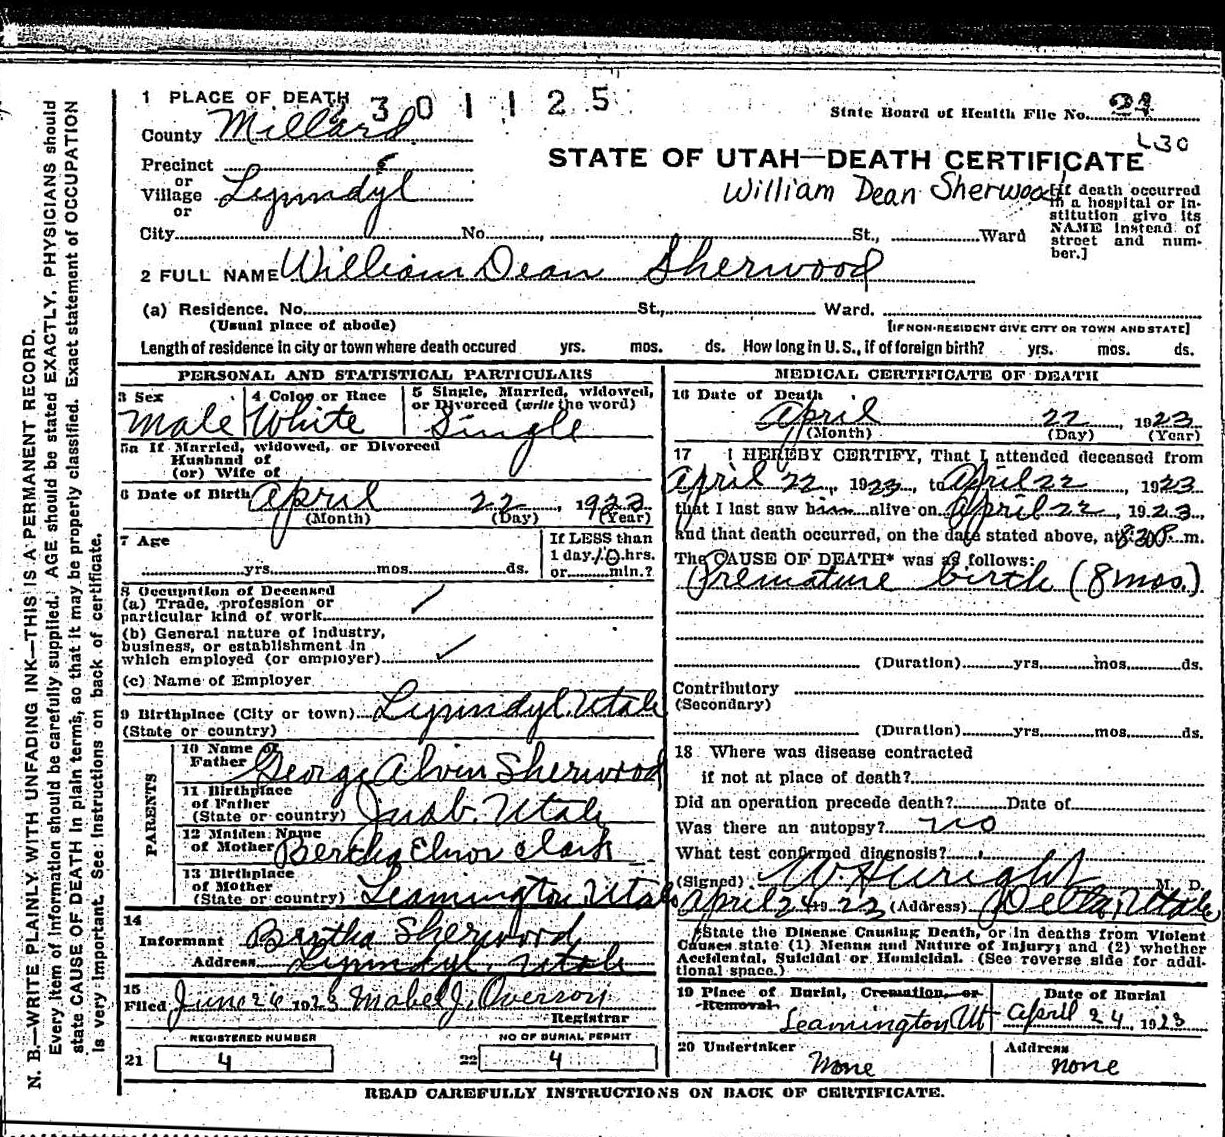 N. B.—WRITE PLAINLY, WITH UNFADING INK—THIS IS A PERMANENT RECORD.
Every item of information should be carefully supplied. AGE should be stated EXACTLY. PHYSICIANS should
state CAUSE OF DEATH in plain terms, so that it may be properly classified. Exact statement of OCCUPATION
is very important. See Instructions on back of certificate.
1 PLACE OF DEATH 2301125
State Board of Health File No. 29
L30
County Millard
STATE OF UTAH—DEATH CERTIFICATE
William Dean Sherwood
Precinct
or
Village Lynndyl
or
[If death occurred
in a hospital or in-
stitution give its
NAME instead of
street and num-
ber.]
City No. St., Ward
2 FULL NAME William Dean Sherwood
(a) Residence. No. St., Ward.
(Usual place of abode) [IF NON-RESIDENT GIVE CITY OR TOWN AND STATE]
Length of residence in city or town where death occured yrs. mos. ds. How long in U. S., if of foreign birth? yrs. mos. ds.
PERSONAL AND STATISTICAL PARTICULARS
3 Sex Male
4 Color or Race White
5 Single, Married, widowed,
or Divorced (write the word) Single
5a If Married, widowed, or Divorced
Husband of
(or) Wife of
6 Date of Birth April 22, 1923
(Month) (Day) (Year)
7 Age
yrs. mos. ds.
If LESS than
1 day, 10 hrs.
or min.?
8 Occupation of Deceased
(a) Trade, profession or
particular kind of work ✓
(b) General nature of industry,
business, or establishment in
which employed (or employer) ✓
(c) Name of Employer
9 Birthplace (City or town) Lynndyl, Utah
(State or country)
PARENTS
10 Name of
Father George Alvin Sherwood
11 Birthplace
of Father
(State or country) Juab. Utah
12 Maiden Name
of Mother Bertha Elnor Clark
13 Birthplace
of Mother
(State or country) Leamington, Utah
14
Informant Bertha Sherwood
Address Lynndyl, Utah
15
Filed June 26 1923 Mabel J. Overson
Registrar
REGISTERED NUMBER
21 4
NO OF BURIAL PERMIT
22 4
MEDICAL CERTIFICATE OF DEATH
16 Date of Death
April 22, 1923
(Month) (Day) (Year)
17 I HEREBY CERTIFY, That I attended deceased from
April 22, 1923, to April 22, 1923
that I last saw him alive on April 22, 1923,
and that death occurred, on the date stated above, at 8:30P. m.
The CAUSE OF DEATH* was as follows:
Premature birth (8 mos.)
(Duration) yrs. mos. ds.
Contributory
(Secondary)
(Duration) yrs. mos. ds.
18 Where was disease contracted
if not at place of death?
Did an operation precede death? Date of
Was there an autopsy? no
What test confirmed diagnosis?
(Signed) Wright M. D.
April 24 1923 (Address) Delta, Utah
*State the Disease Causing Death, or in deaths from Violent
Causes state (1) Means and Nature of Injury; and (2) whether
Accidental, Suicidal or Homicidal. (See reverse side for addi-
tional space.)
19 Place of Burial, Cremation, or
Removal
Leamington Ut
Date of Burial
April 24, 1923
20 Undertaker
None
Address
none
READ CAREFULLY INSTRUCTIONS ON BACK OF CERTIFICATE.